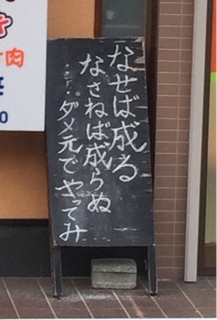 なせば成る
なさねば成らぬ
ダメ元でやってみ
肉
0